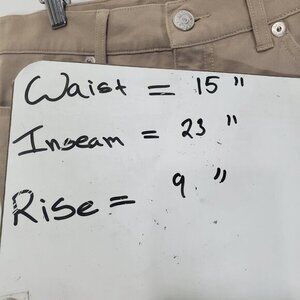 Waist = 15 "
Inseam = 23 "
Rise = 9 "